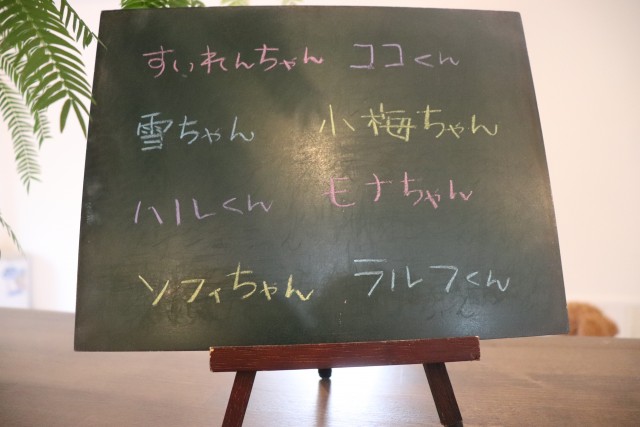 すいれんちゃん ココくん
雪ちゃん 小梅ちゃん
ハルくん モナちゃん
ソフィちゃん ラルフくん